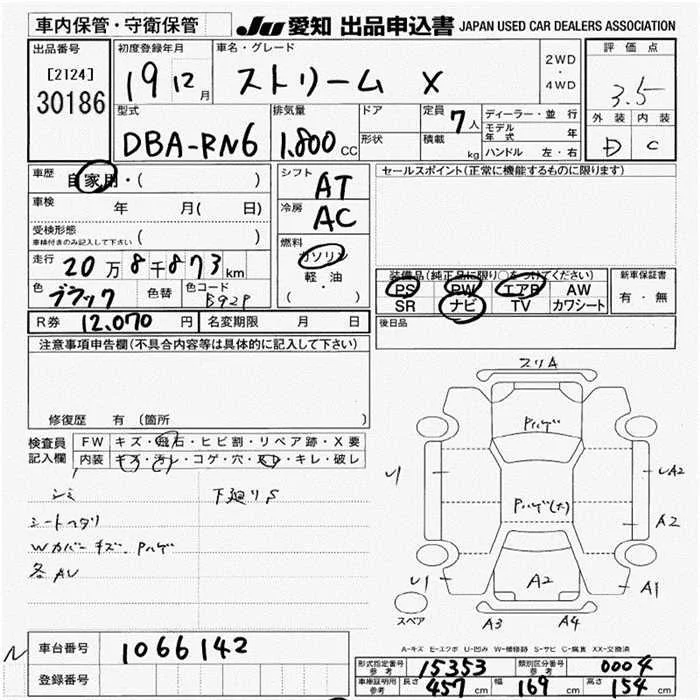 車内保管・守衛保管
JU 愛知 出品申込書 JAPAN USED CAR DEALERS ASSOCIATION
出品番号
[2124]
30186
初度登録年月
19 12月
車名・グレード
ストリーム X
2WD
・
4WD
評価点
3.5
外装 内装
D C
型式
DBA-RN6
排気量
1.800 cc
ドア
形状
定員 7人
積載 kg
ディーラー・並行
モデル年式 年
ハンドル 左・右
車歴 自家用・( )
車検 年 月( 日)
受検形態
車検付きのみ記入して下さい ( )
走行 20万8千873km
色 ブラック 色替 色コード B92P
シフト AT
冷房 AC
燃料
ガソリン
軽・油
( ・ )
セールスポイント(正常に機能するものに限ります)
装備品(純正品に限り○をつけてください)
PS PW エアB AW
SR ナビ TV カワシート
新車保証書
有・無
R券 12,070円 名変期限 月 日
後日品
注意事項申告欄(不具合内容等は具体的に記入して下さい)
修復歴 有 (箇所 )
検査員記入欄
FW キズ・飛石・ヒビ割・リペア跡・X要
内装 キズ・汚レ・コゲ・穴・スレ・キレ・破レ
シミ 下廻りS
シートヘタリ
Wカバーキズ. Pハゲ
各AU
スリA
Pハゲ
U1 UA2
Pハゲ(大)
A2
U1 A2 A1
スペア
A3 A4
A-キズ E-エクボ U-凹み W-補修跡 S-サビ C-腐食 XX-交換済
車台番号 1066142
登録番号
形式指定番号 参考 15353
類別区分番号 参考 0004
車庫証明用 参考 長さ 457cm 幅 169cm 高さ 154cm